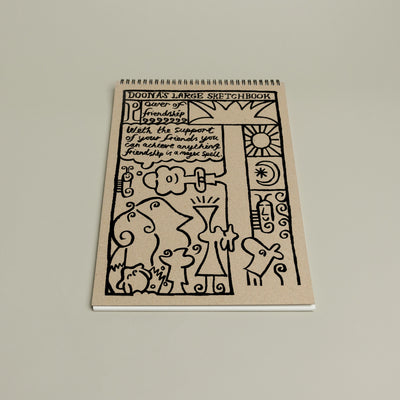 DOONA'S LARGE SKETCHBOOK
Cover of
friendship
With the support
of your friends you
can achieve anything
friendship is a magic spell